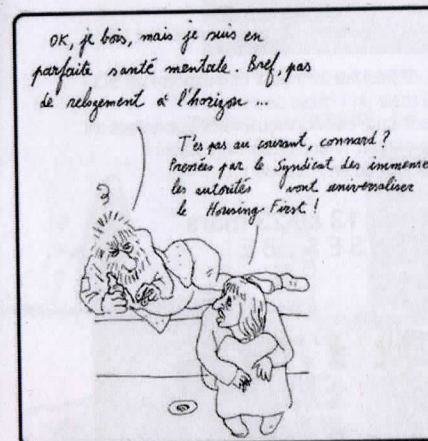 OK, je bois, mais je suis en
parfaite santé mentale. Bref, pas
de relogement à l'horizon ...
T'es pas au courant, connard ?
Prenées par le Syndicat des immenses
les autorités vont universaliser
le Housing First !